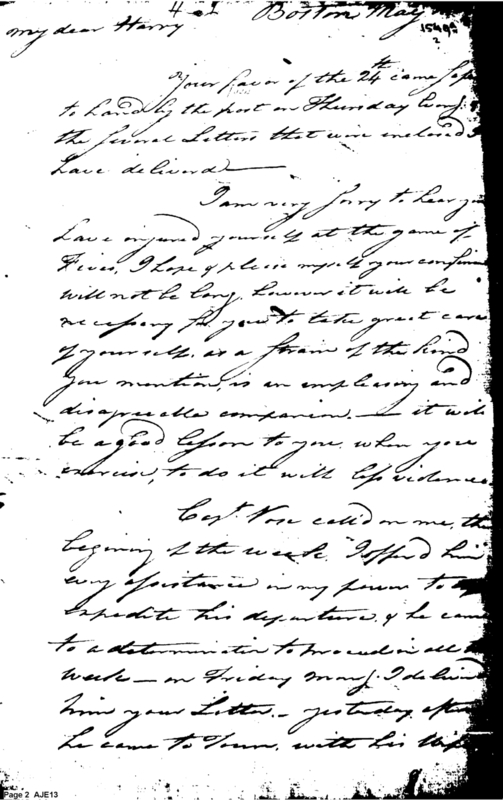 4 Boston May
15499
2
my dear Harry
Your favor of the 24th came safe
to hand by the post on Thursday Eveng. &
the several Letters that were enclosed I
have deliverd
I am very sorry to hear you
have injured yourself at the game of
Fives, I hope & please myself your confine
will not be long, however it will be
necessary for you to take great care
of yourself. as a strain of the kind
you mention, is an unpleasing and
disagreeable companion. — it will
be a good lesson to you, when you
exercise, to do it with less violence
Capt. Vose calld on me, the
begining of the week, I offerd him
every assistance in my power to
expedite his departure, & he came
to a determination to proceed in all
week — on Friday morng. I deliverd
him your Letter. — yesterday after
he came to Town, with his Wife
Page 2 AJE13